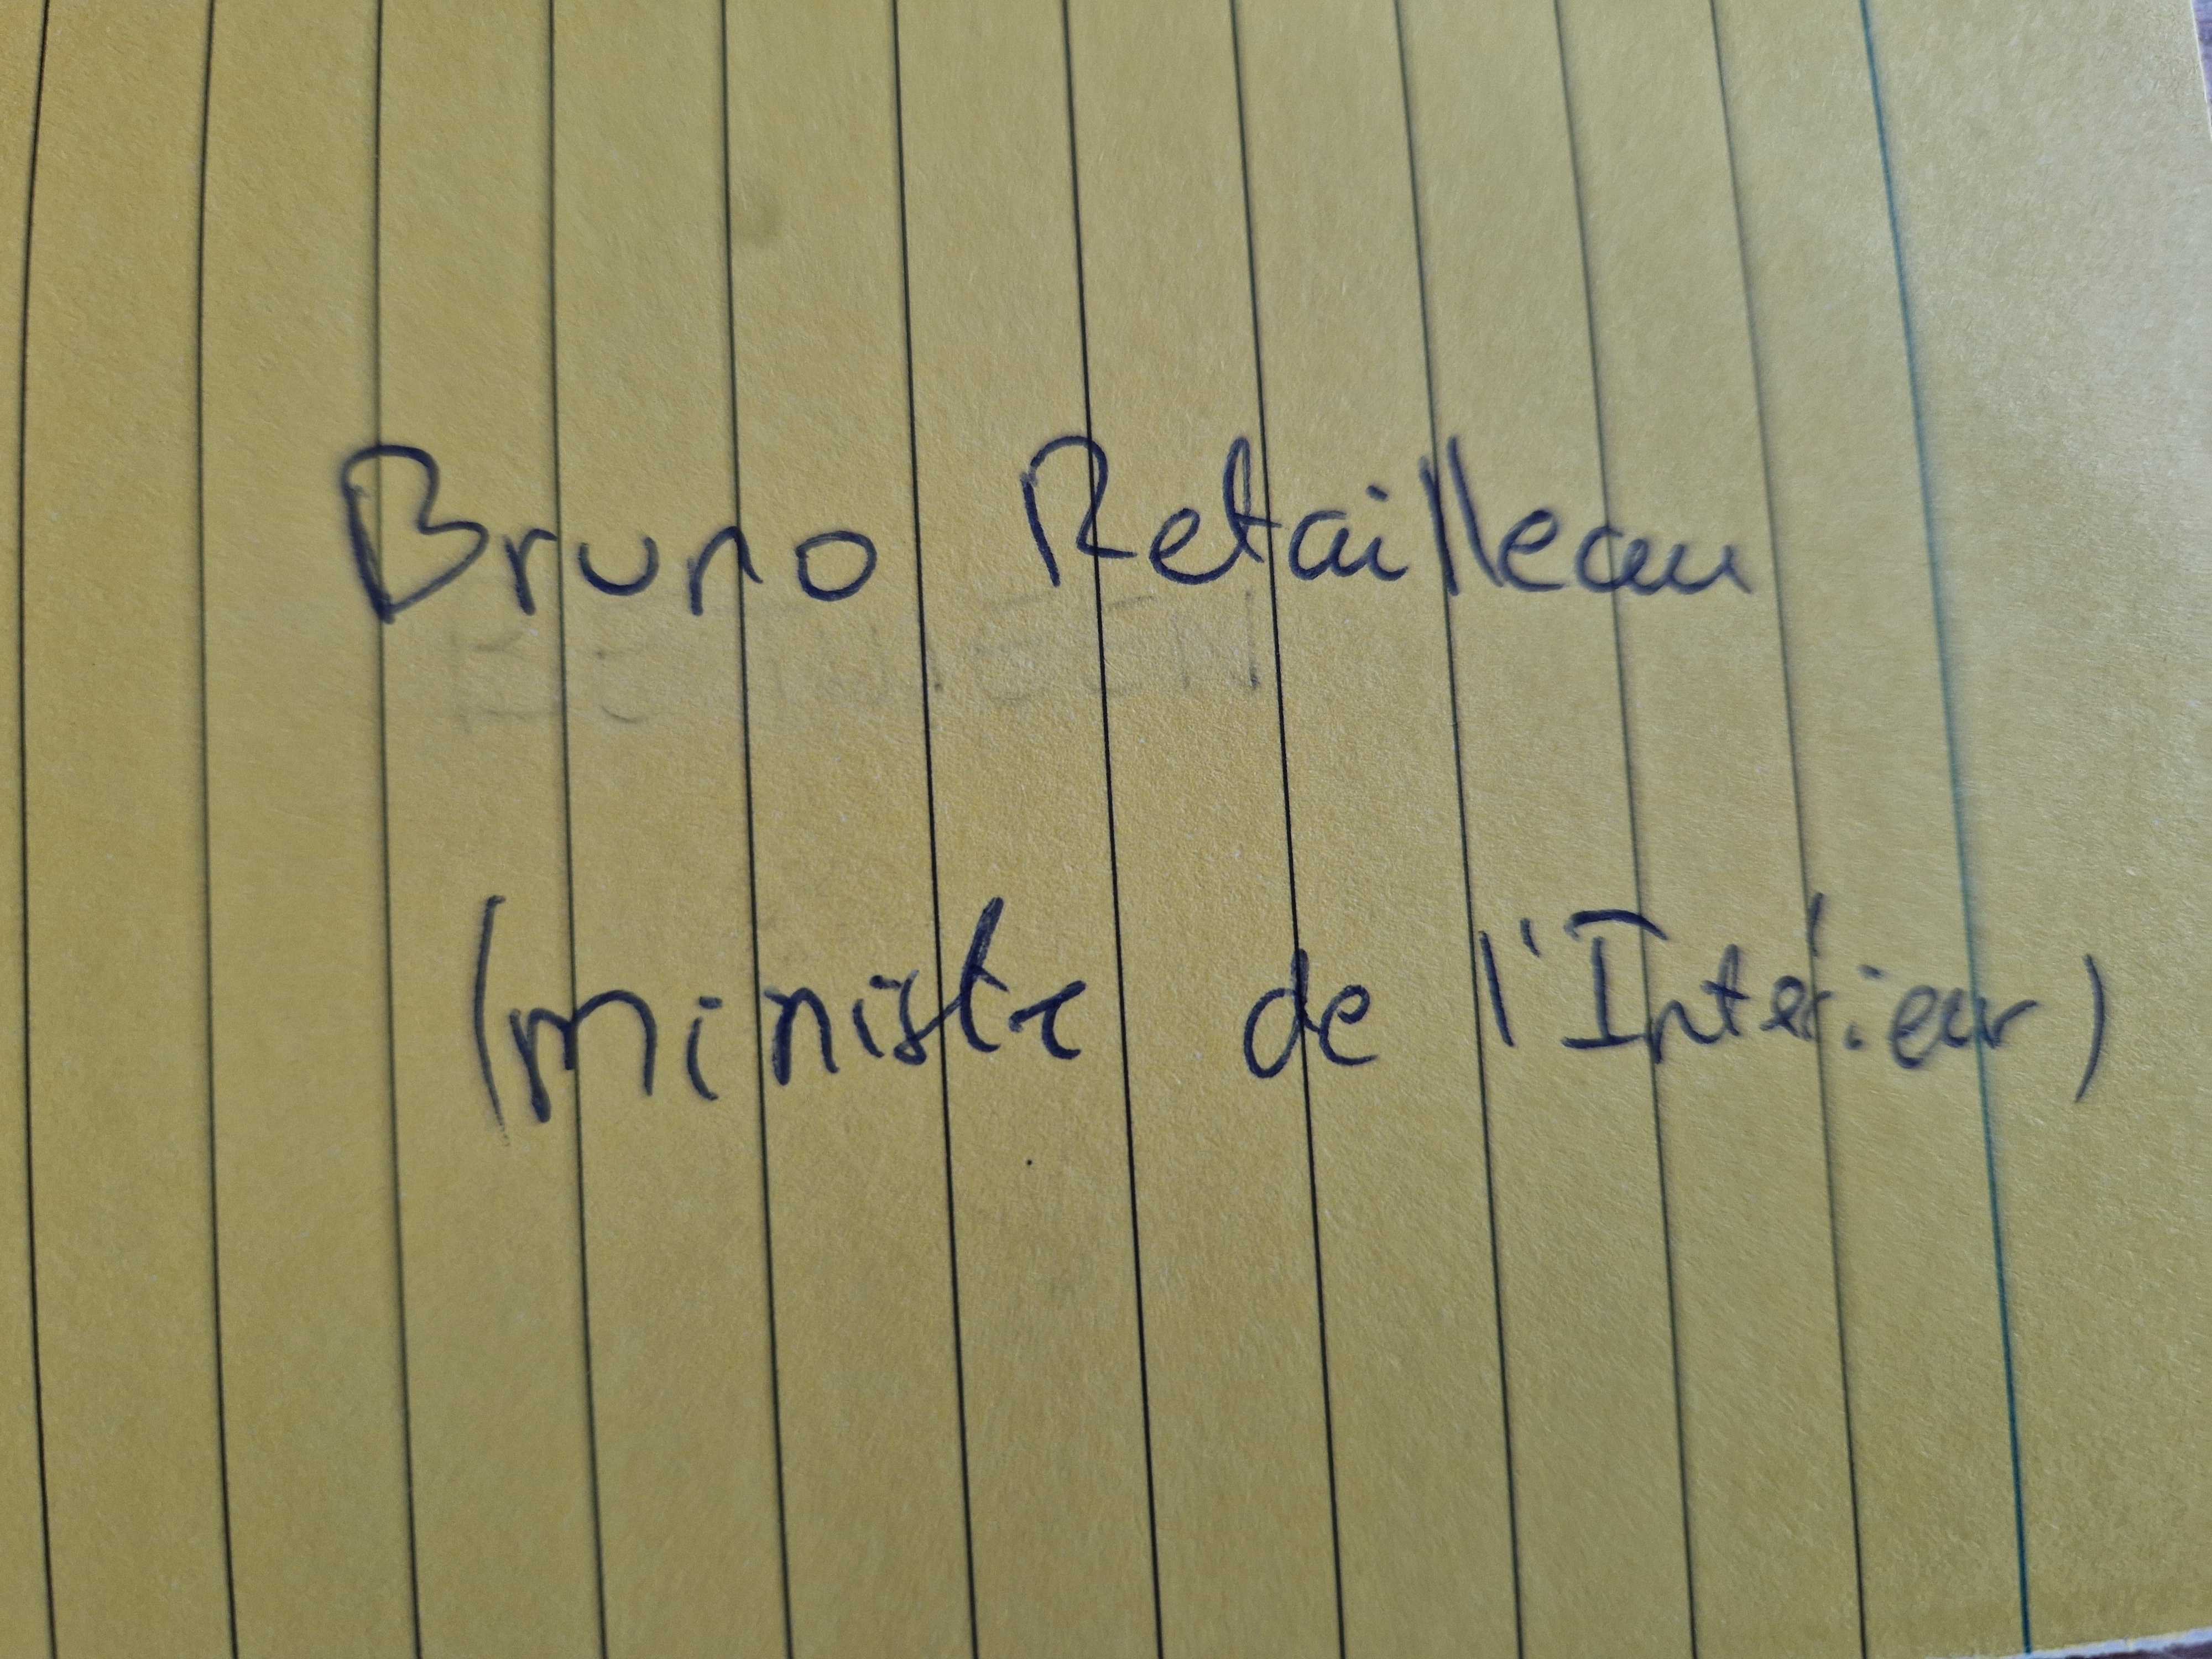 Bruno Retailleau
(ministre de l'Intérieur)